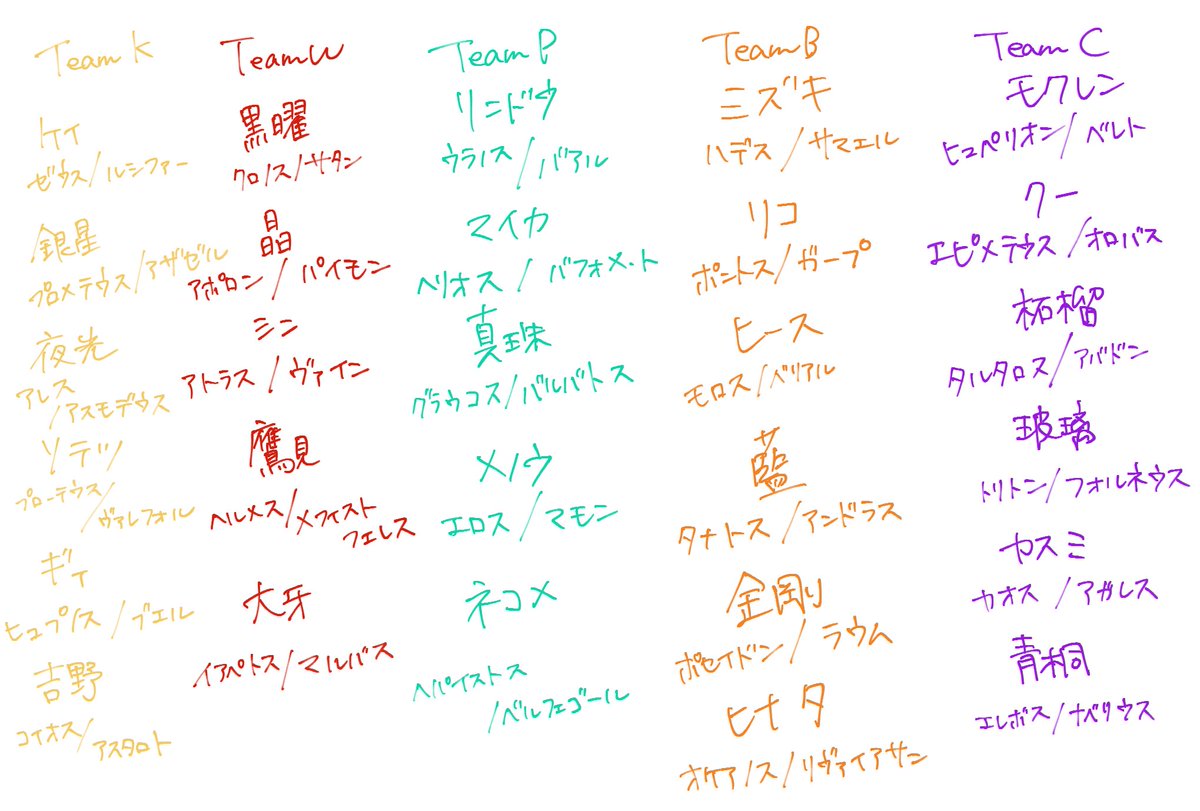 Team K
ケイ
ゼウス/ルシファー
銀星
プロメテウス/アザゼル
夜光
アレス
/アスモデウス
ソテツ
プローテウス
/ヴァレフォル
ギィ
ヒュプノス/ブエル
吉野
コイオス/
アスタロト
Team W
黒曜
クロノス/サタン
晶
アポロン/パイモン
シン
アトラス/ヴァイン
鷹見
ヘルメス/メフィスト
フェレス
大牙
イアペトス/マルバス
Team P
リンドウ
ウラノス/バアル
マイカ
ヘリオス/バフォメット
真珠
グラウコス/バルバトス
メノウ
エロス/マモン
ネコメ
ヘパイストス
/ベルフェゴール
Team B
ミズキ
ハデス/サマエル
リコ
ポントス/ガープ
ヒース
モロス/ベリアル
藍
タナトス/アンドラス
金剛
ポセイドン/ラウム
ヒナタ
オケアノス/リヴァイアサン
Team C
モクレン
ヒュペリオン/ベレト
クー
エピメテウス/オロバス
柘榴
タルタロス/アバドン
玻璃
トリトン/フォルネウス
カスミ
カオス/アガレス
青桐
エレボス/ナベリウス